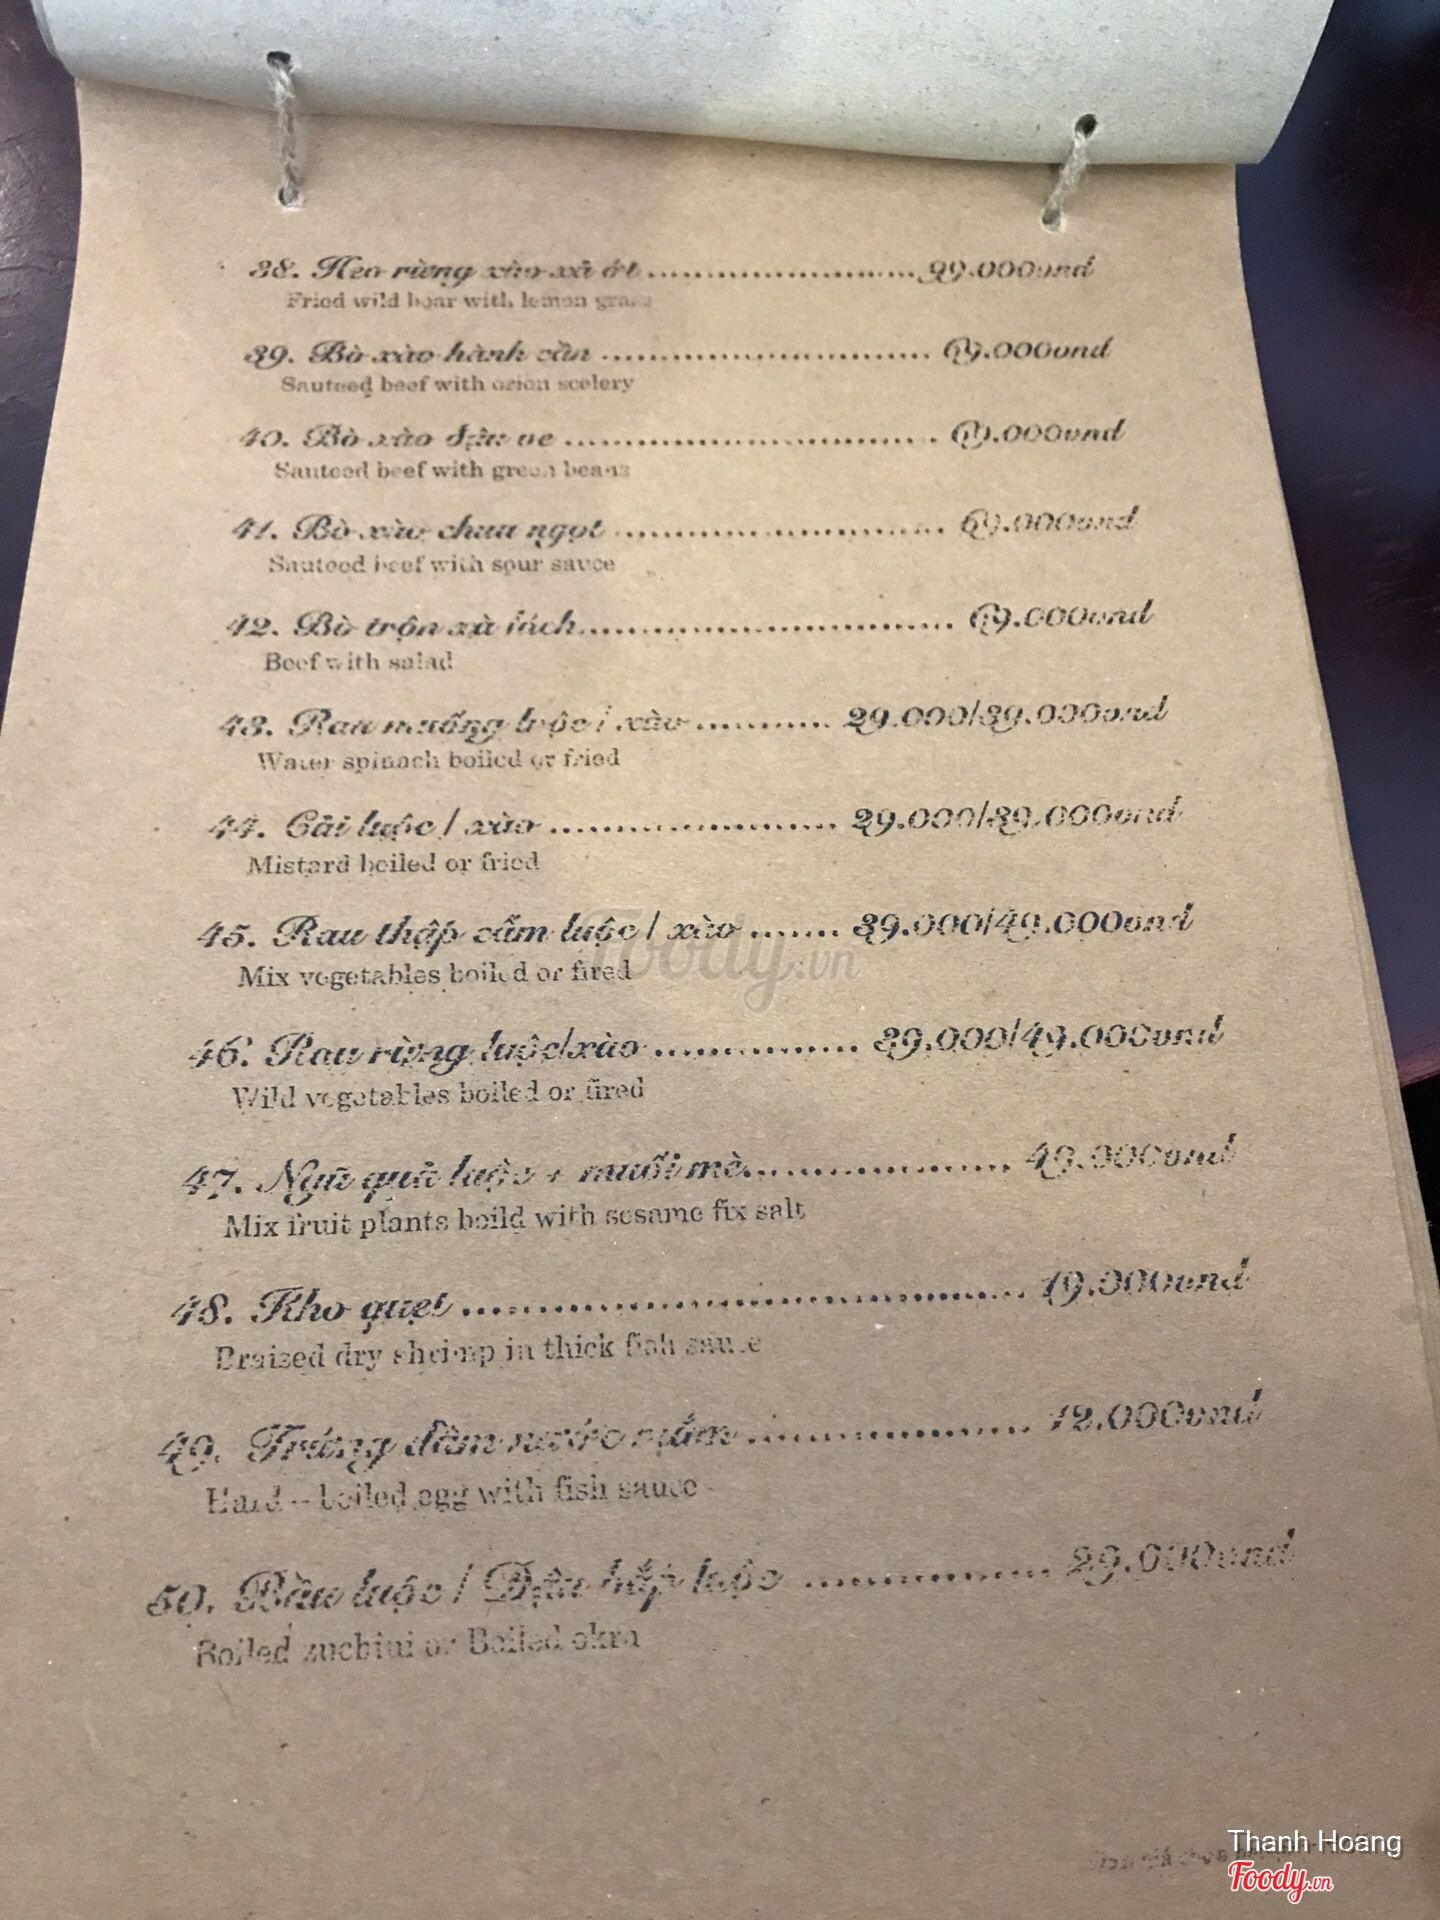 38. Heo rừng xào xả ớt ........................99.000vnd
Fried wild boar with lemon grass
39. Bò xào hành cần ............................ 69.000vnd
Sauteed beef with onion scelery
40. Bò xào đậu ve ................................ 69.000vnd
Sauteed beef with green beans
41. Bò xào chua ngọt ............................ 69.000vnd
Sauteed beef with sour sauce
42. Bò trộn xà lách................................ 69.000vnd
Beef with salad
43. Rau muống luộc / xào ............ 29.000/39.000vnd
Water spinach boiled or fried
44. Cải luộc / xào ........................ 29.000/39.000vnd
Mistard boiled or fried
45. Rau thập cẩm luộc / xào ....... 39.000/49.000vnd
Mix vegetables boiled or fired
46. Rau rừng luộc/xào ................ 39.000/49.000vnd
Wild vegetables boiled or fired
47. Ngũ quả luộc + muối mè..................... 49.000vnd
Mix fruit plants boild with sesame fix salt
48. Kho quẹt ........................................ 19.000vnd
Braized dry shrimp in thick fish sauce
49. Trứng dầm nước mắm ...................... 12.000vnd
Hard – boiled egg with fish sauce
50. Bầu luộc / Đậu bắp luộc .................. 29.000vnd
Boiled zuchini or Boiled okra
Foody.vn
Thanh Hoang
Foody.vn